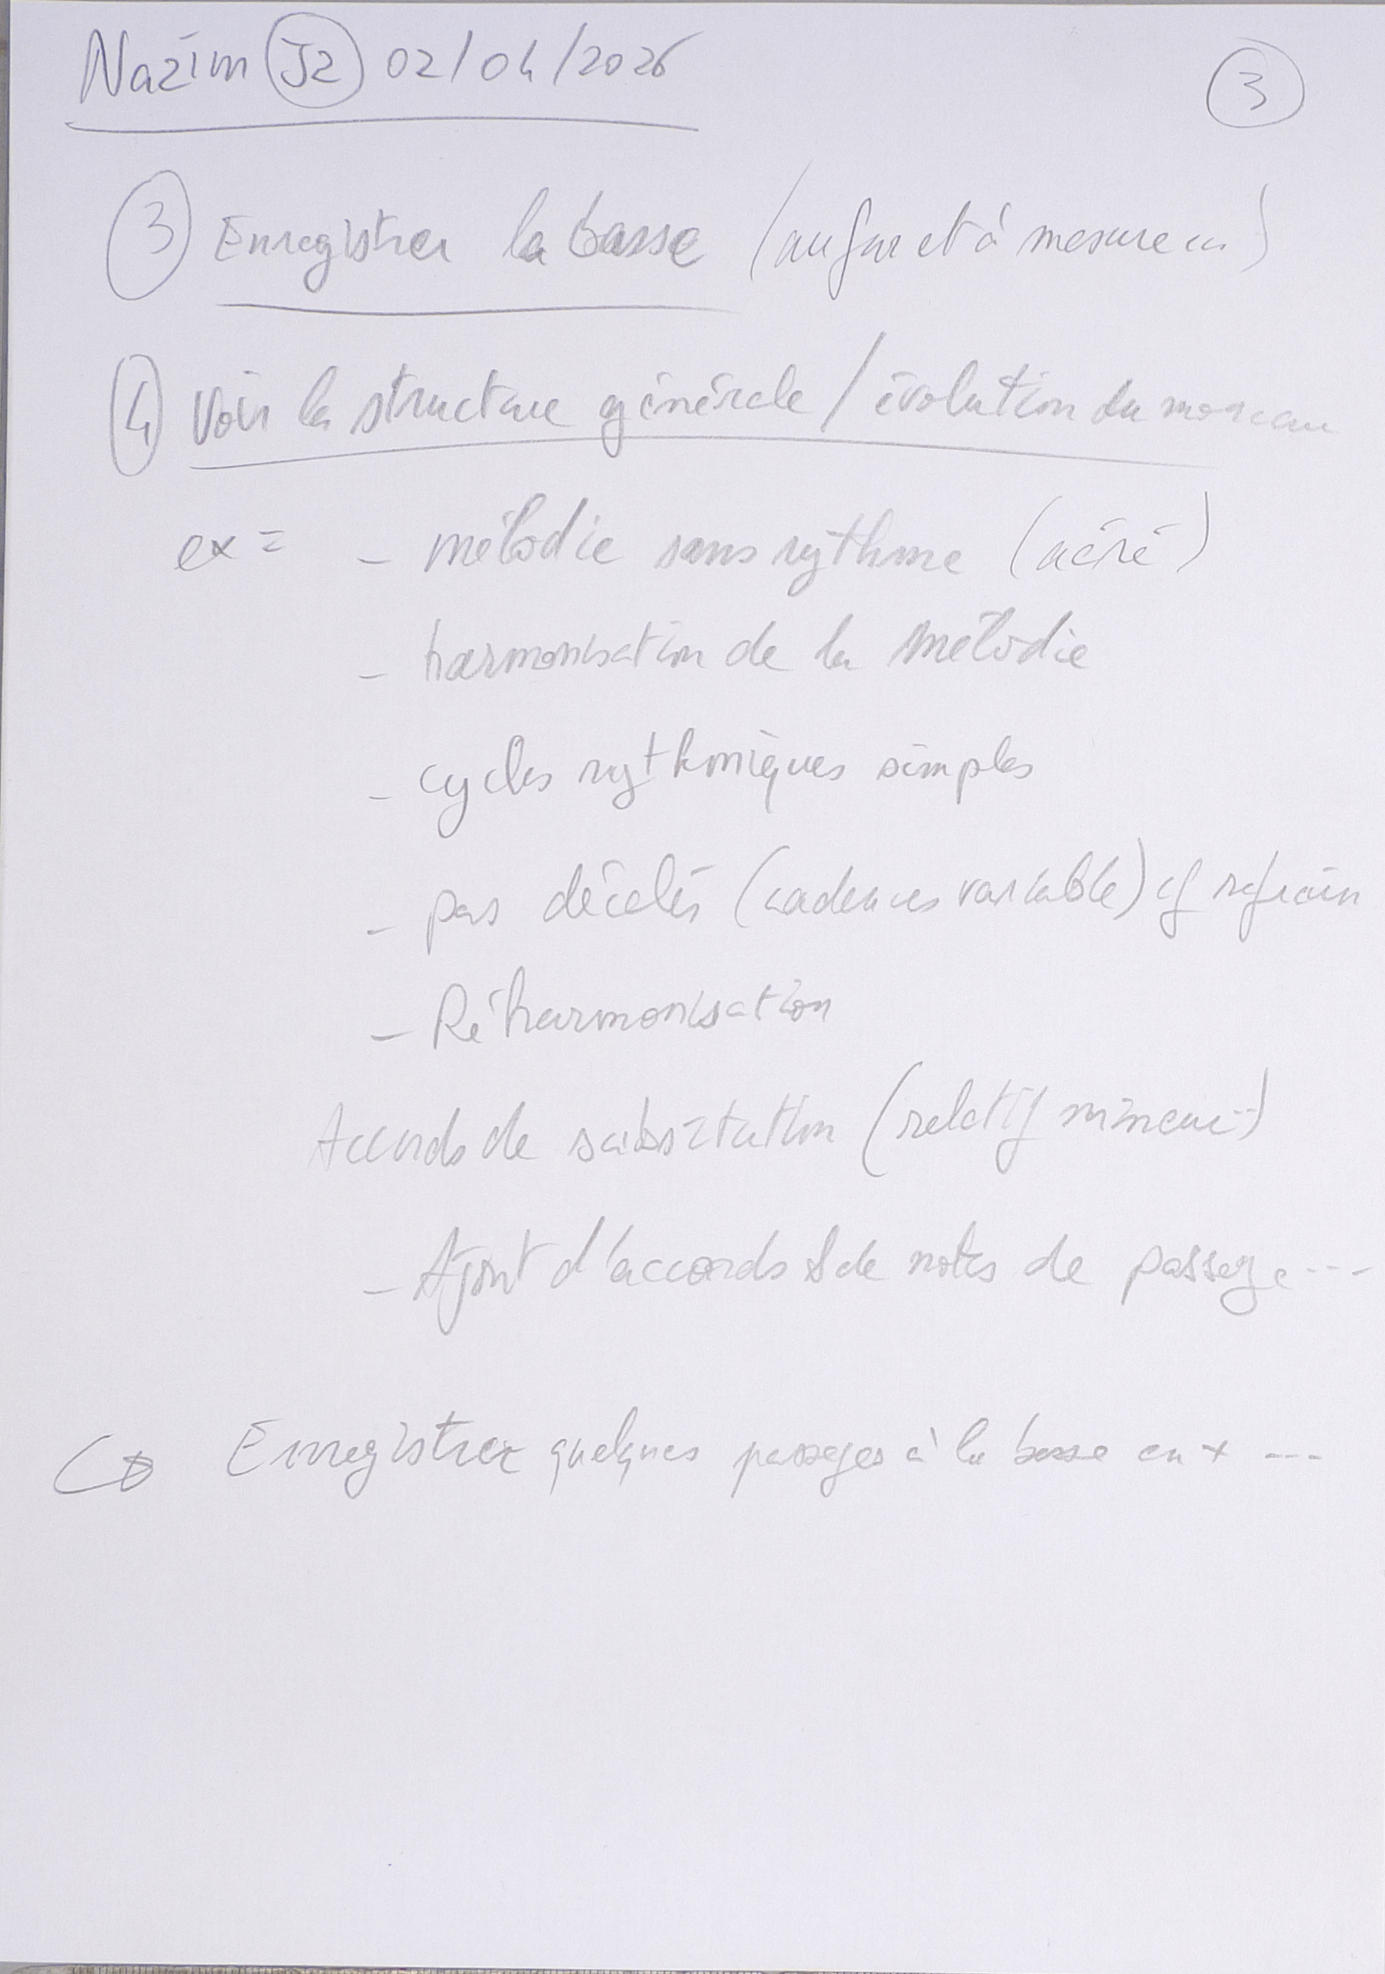 Nazim J2 02/04/2026
3
3 Enregistrer la basse (au fur et à mesure)
4 Voir la structure générale / évolution du morceau
ex = - mélodie sans rythme (aéré)
- harmonisation de la mélodie
- cycles rythmiques simples
- pas décalés (cadences variable) cf refrain
- Réharmonisation
Accords de (relatif mineur)
- Ajout d'accords & de notes de passage ---
Enregistrer quelques passages à la basse en + ---